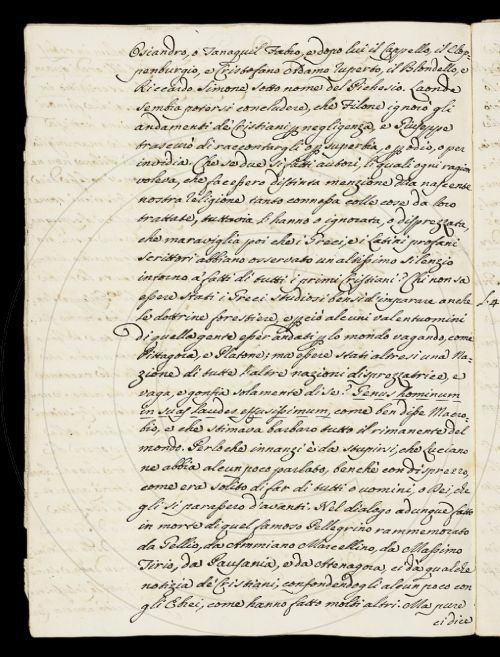 Osiandro, o Tanaquil Fabro, e dopo lui il Cappello, il Clop-
penburgio, e Cristofano Adamo Ruperto, il Blondello, e
Riccardo Simone sotto nome del Richesio. Laonde
sembra potersi concludere, che Filone ignorò gli
andamenti de' Cristiani p negligenza, e Giuseppe
trasecuiò di raccontargli o p superbia, o p odio, o per
invidia. Che se due sì fatti autori, li quali ogni ragion
voleva, che facessero distinta menzione della nascente
nostra Religione tanto connessa colle cose da loro
trattate, tuttavia l' hanno o ignorata, o disprezzata,
che maraviglia poi che i Greci, e i Latini profani
scrittori abbiano osservato un altissimo silenzio
intorno a' fatti di tutti i primi Cristiani? Chi non sa
essere stati i Greci studiosi bensì d'imparare anche
le dottrine forestiere, e perciò alcuni valentuomini
di quella gente esser andati p lo mondo vagando, come
Pittagora, e Platone; ma essere stati altresì una Na-
zione di tutte l'altre nazioni disprezzatrice, e
vaga, e gonfia solamente di se? Genus hominum
in suas laudes effusissimum, come ben disse Macro-
bio, e che stimava barbaro tutto il rimanente del
mondo. Perloche innanzi è da stupirsi, che Luciano
ne abbia alcun poco parlato, benchè con disprezzo,
come era solito di far di tutti o uomini, o Dei, che
gli si parassero d'avanti. Nel dialogo adunque fatto
in morte di quel famoso Pellegrino rammemorato
da Gellio, da Ammiano Marcellino, da Massimo
Tirio, da Pausania, e da Atenagora, ci dà qualche
notizia de' Cristiani, confondendogli alcun poco con
gli Ebrei, come hanno fatto molti altri. Ma pure
ci dice